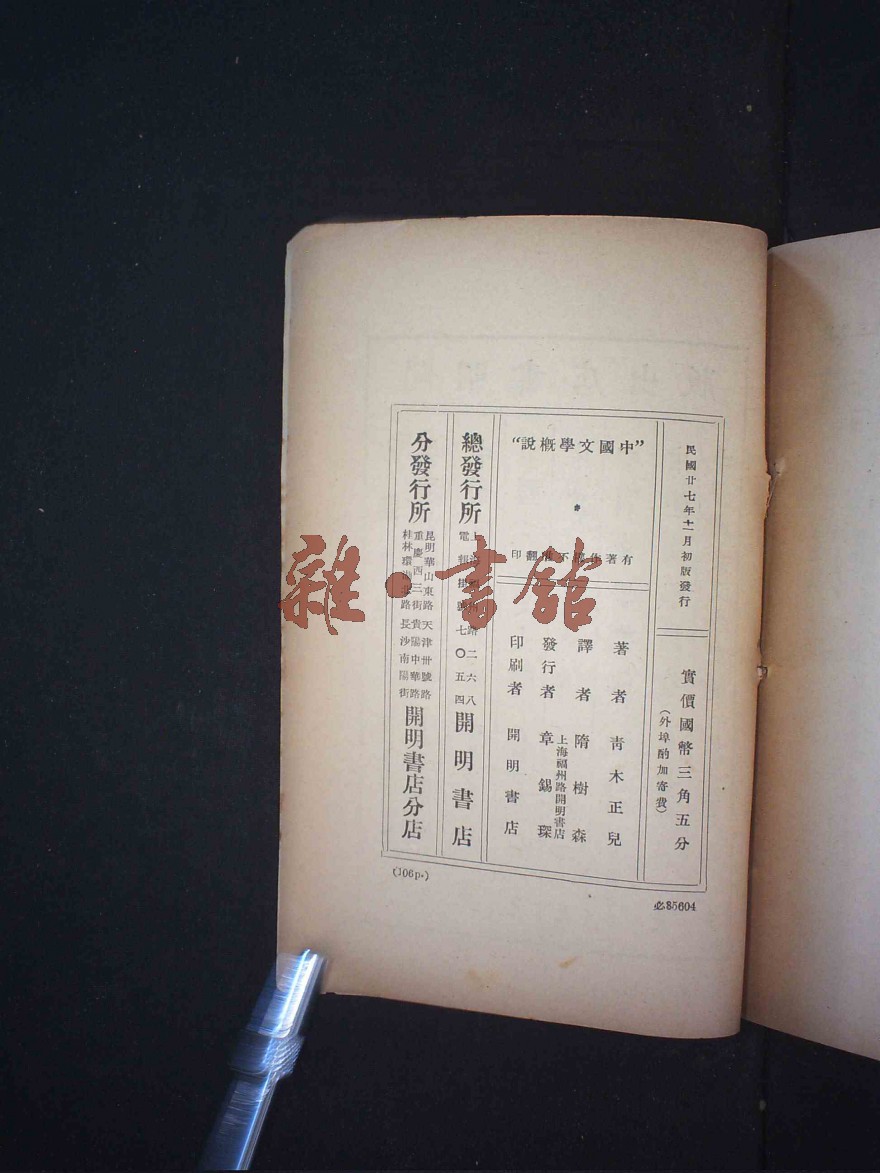 民國廿七年十一月初版發行
實價國幣三角五分
(外埠酌加寄費)
“說概學文國中”
印翻准不權作著有
著者 青木正兒
譯者 隋樹森
上海福州路開明書店
發行者 章錫琛
印刷者 開明書店
總發行所
電報掛號七〇五四
開明書店
分發行所
昆明華山東路 天津卅號路
重慶西三街 貴陽中華路
長沙南陽街
開明書店分店
(106p.)
必.85604
雜·書館